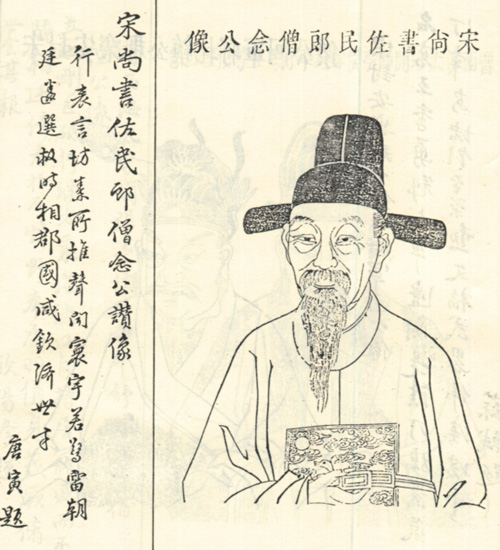 宋尚書佐民郎僧念公像
宋尚書佐民郎僧念公讚像
行表言坊素所推聲聞寰宇若雷朝
廷選救時相郡國咸欽濟世才
唐寅題